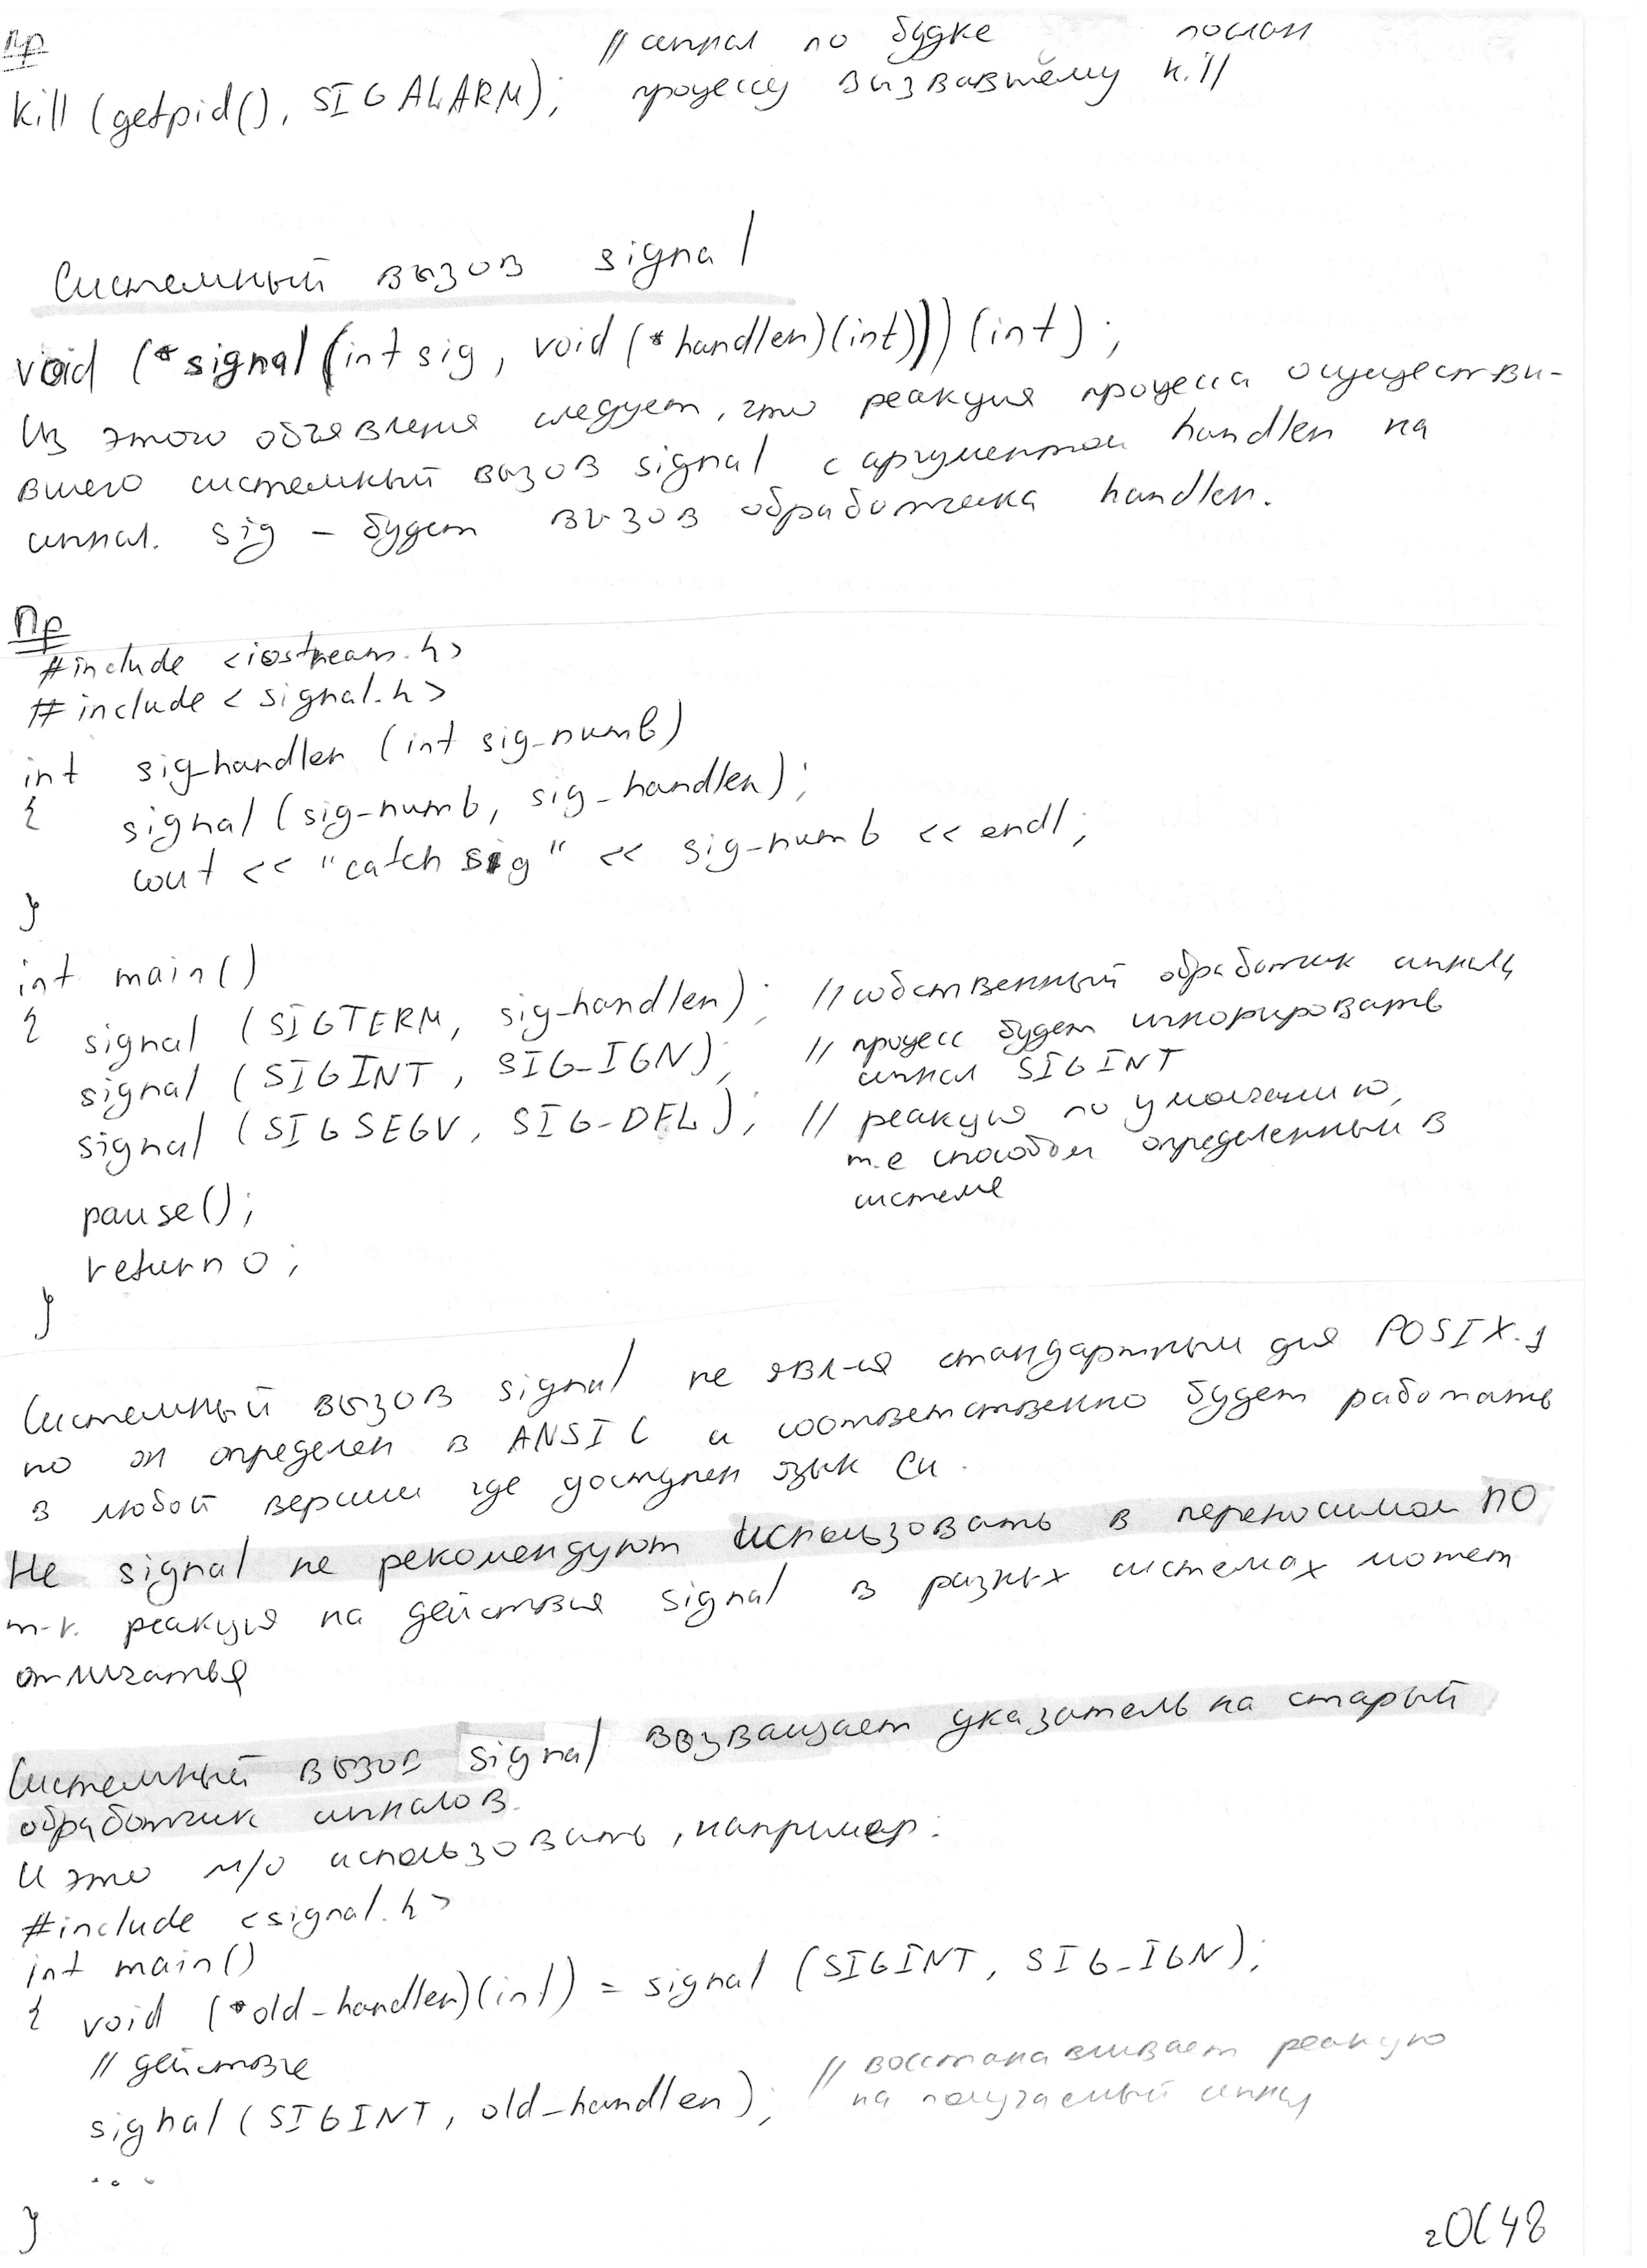 Пр
// сигнал по будке послан
kill (getpid(), SIGALARM); процессу вызвавшему kill
Системный вызов signal
void (*signal (int sig, void (*handler)(int)))(int);
Из этого объявления следует, что реакция процесса осуществи-
вшего системный вызов signal с аргументом handler на
сигнал. sig – будет вызов обработчика handler.
Пр
#include <iostream.h>
#include <signal.h>
int sig_handler (int sig_numb)
{ signal (sig_numb, sig_handler);
cout << "catch sig" << sig_numb << endl;
}
int main()
{ signal (SIGTERM, sig_handler); // собственный обработчик сигнала
signal (SIGINT, SIG_IGN); // процесс будет игнорировать
сигнал SIGINT
signal (SIGSEGV, SIG_DFL); // реакцию по умолчанию,
т.е способом определенным в
системе
pause();
return 0;
}
Системный вызов signal не явл-ся стандартным для POSIX.1
но он определен в ANSI C и соответственно будет работать
в любой версии где доступен язык Си.
Не signal не рекомендуют использовать в переносимом ПО
т.к. реакция на действия signal в разных системах может
отличаться
Системный вызов signal возвращает указатель на старый
обработчик сигналов.
И это м/о использовать, например:
#include <signal.h>
int main()
{ void (*old_handler)(int) = signal (SIGINT, SIG_IGN);
// действие
signal (SIGINT, old_handler); // восстанавливает реакцию
на получаемый сигнал
...
}
2ОС48